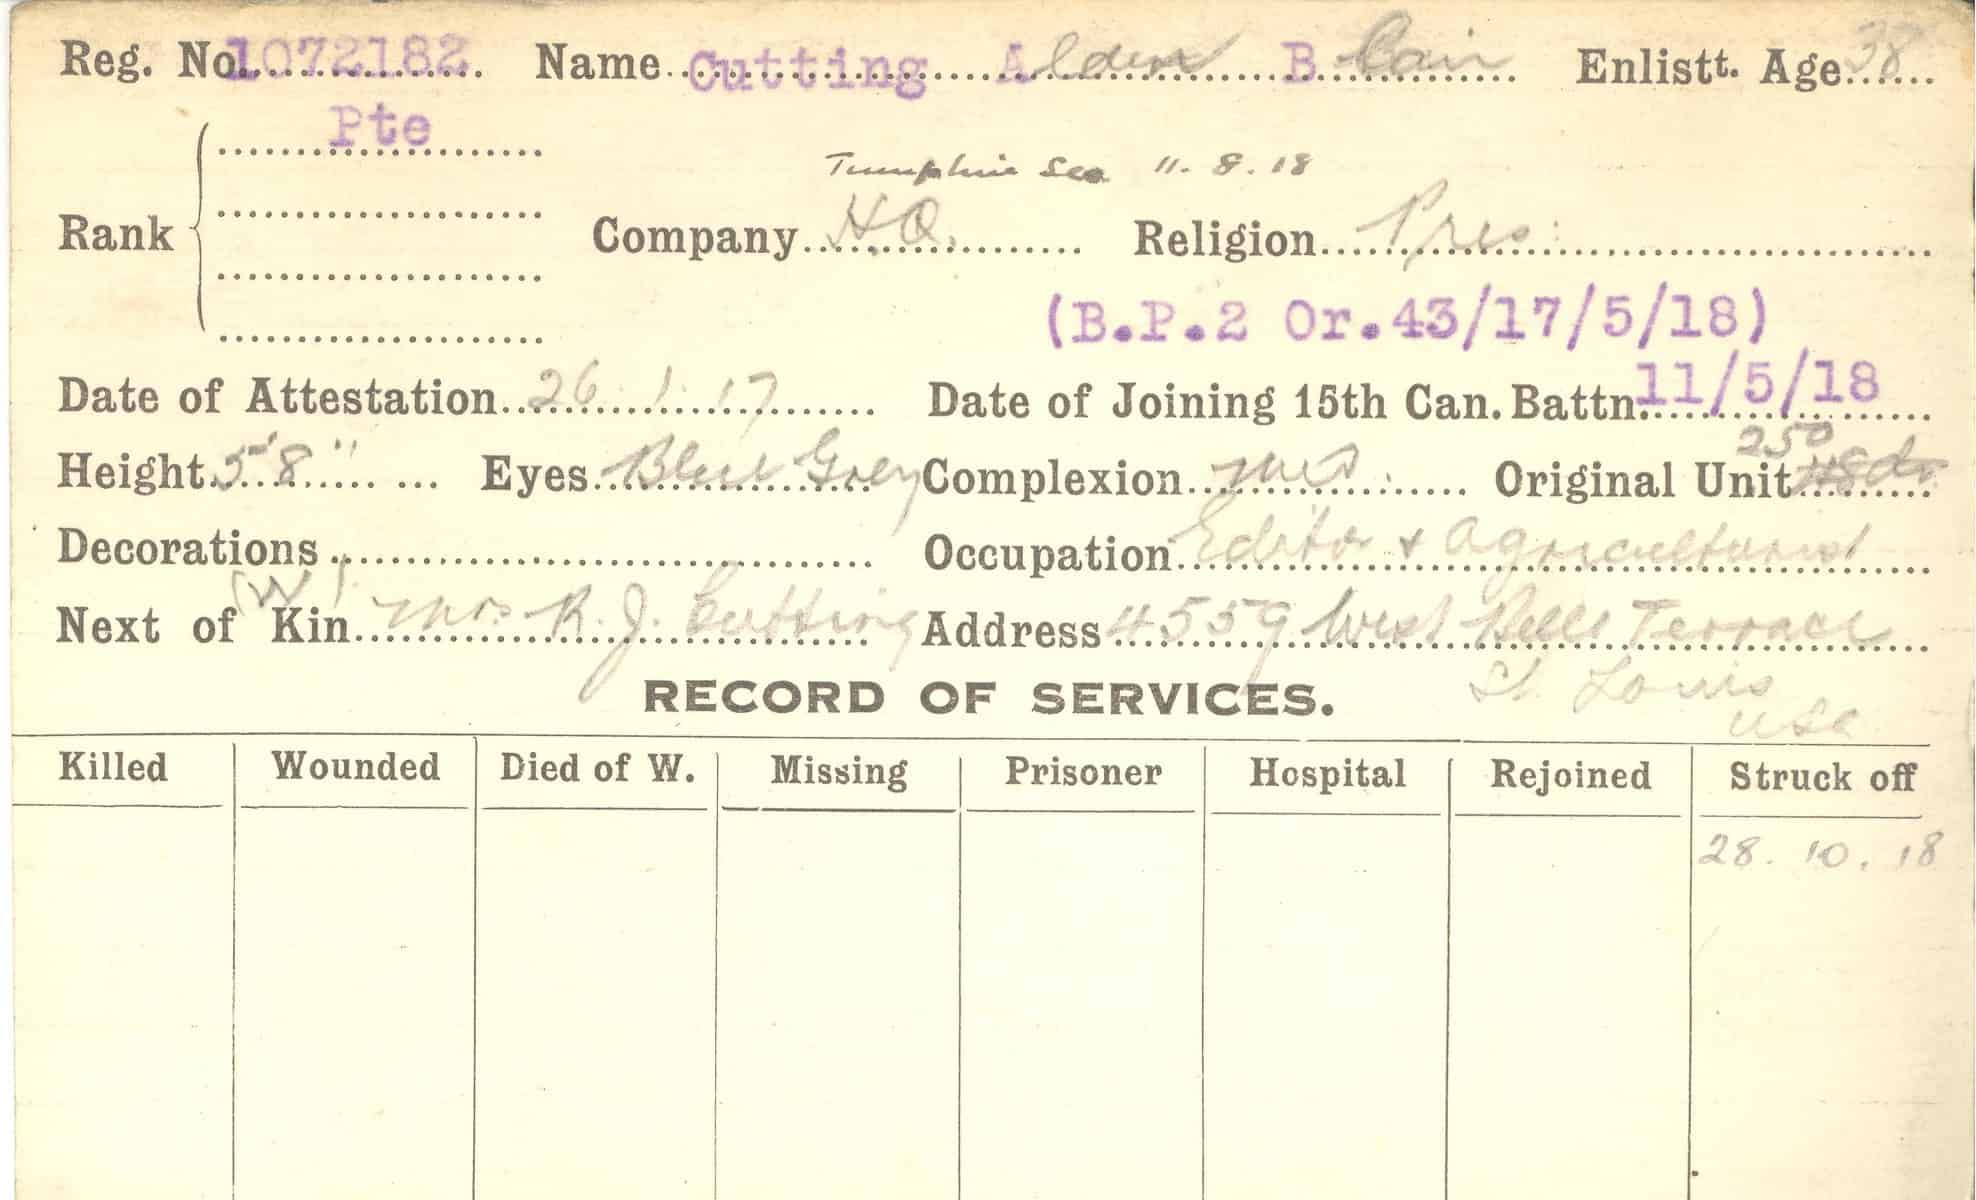 Reg. No. 1072182 Name Cutting Alden B Cair Enlistt. Age 38
Pte
11.8.18
Rank Company HQ. Religion Pres:
(B.P.2 Or.43/17/5/18)
Date of Attestation 26.1.17 Date of Joining 15th Can. Battn. 11/5/18
250
Height 5'8" Eyes Blue Grey Complexion Med. Original Unit
Decorations Occupation Editor & Agriculturist
(W)
Next of Kin Mrs. R. J. Cutting Address 4559 West Belle Terrace
St. Louis
USA
RECORD OF SERVICES.
Killed Wounded Died of W. Missing Prisoner Hospital Rejoined Struck off
28.10.18